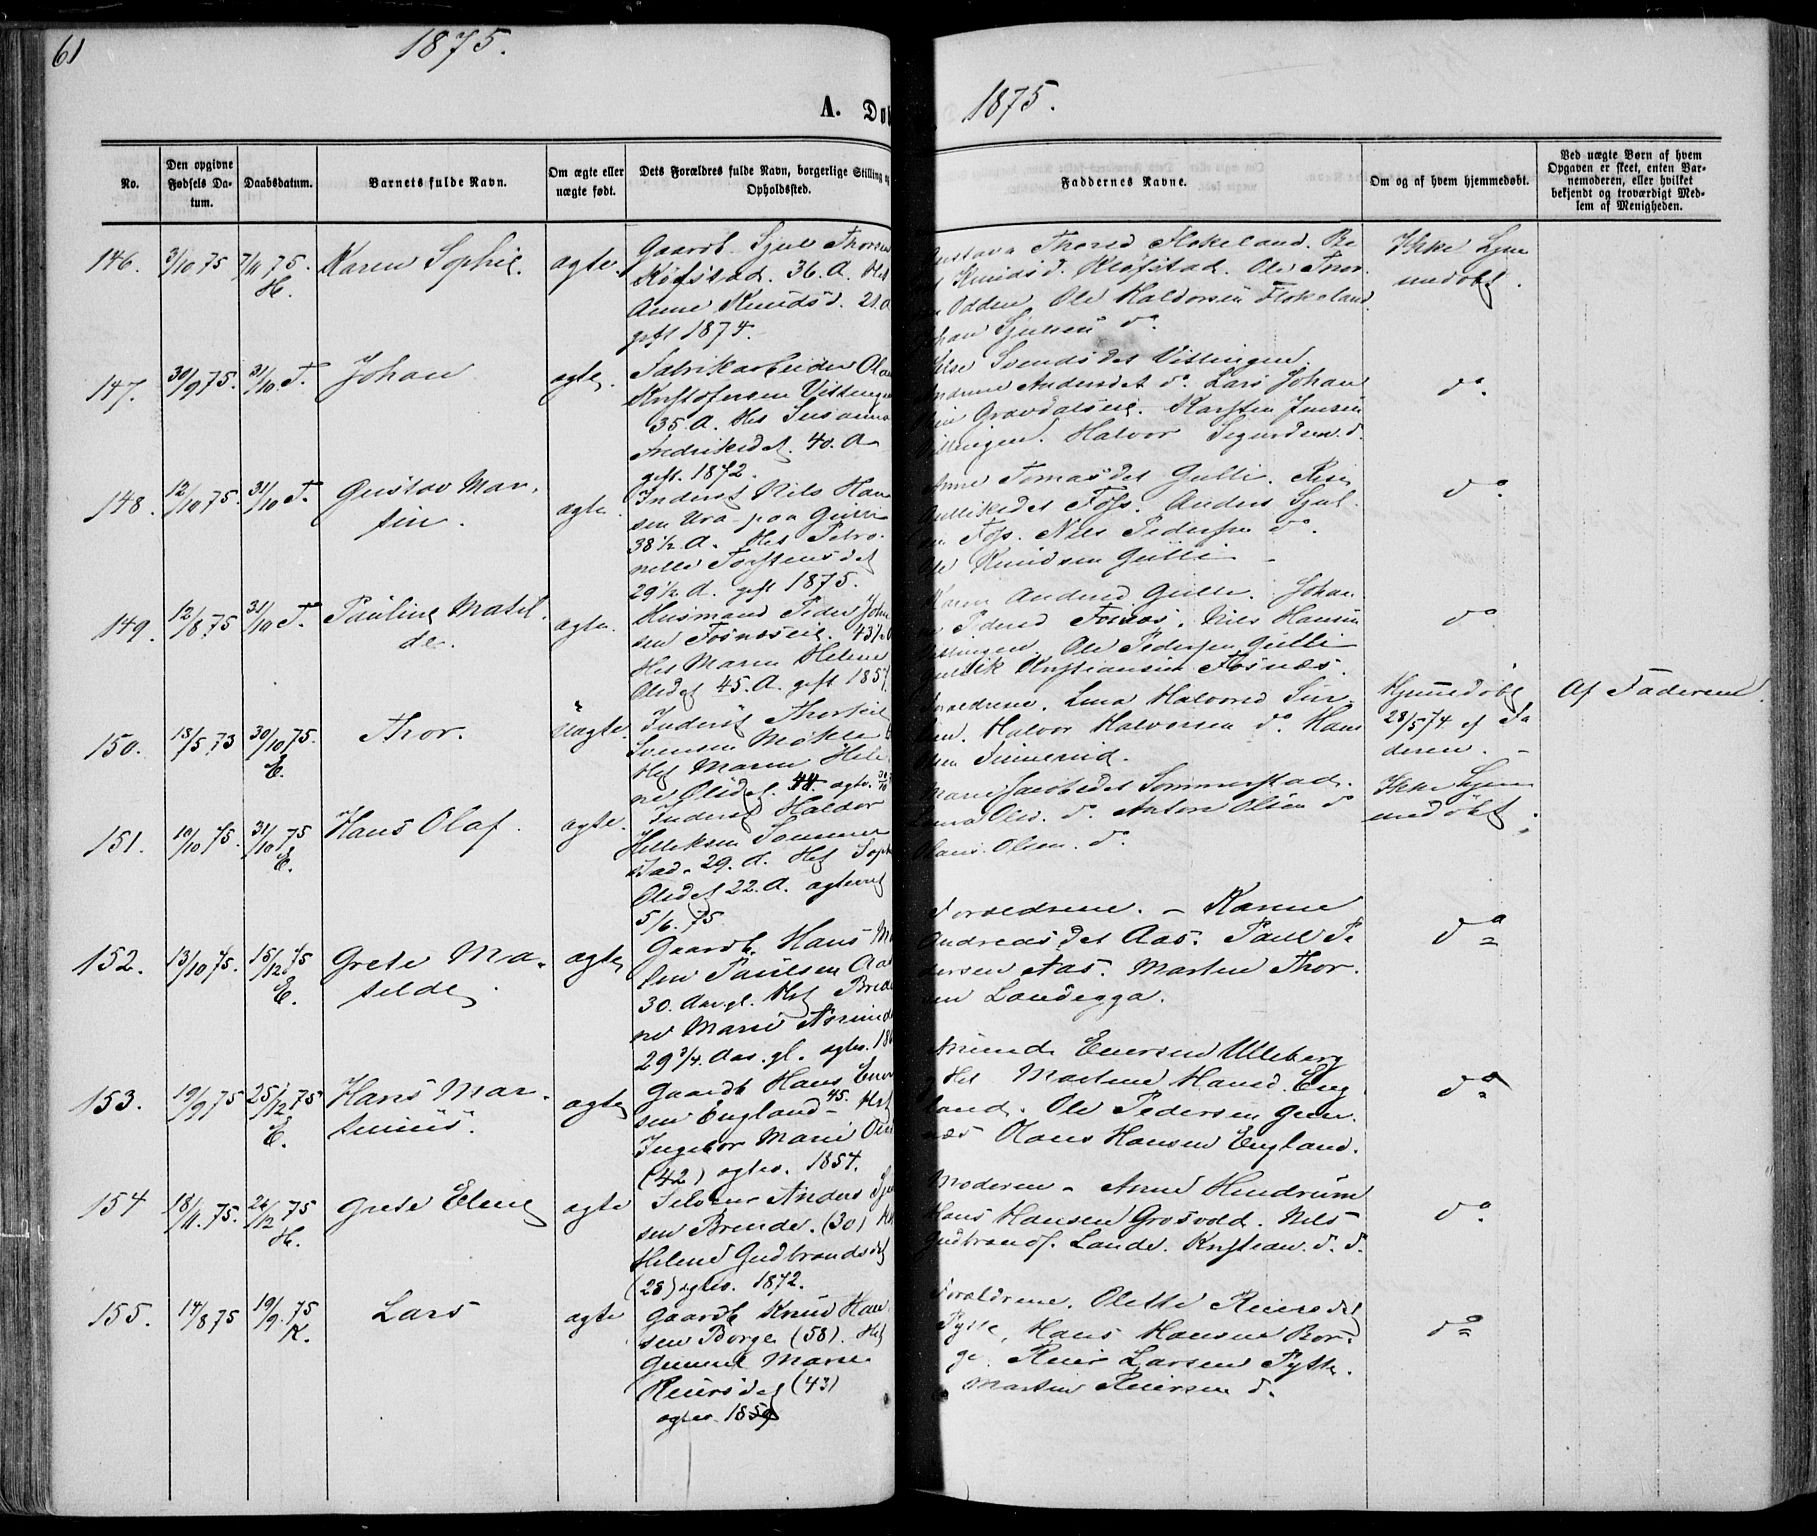 61
1875.
1875.
A. Dø
No.
Den opgivne
Fødsels Da-
tum.
Daabsdatum.
Barnets fulde Navn.
Om ægte eller
uægte født.
Dets Forældres fulde Navn, borgerlige Stilling og
Opholdssted.
Faddernes Navne.
Om og af hvem hjemmedøbt.
Ved uægte Børn af hvem
Opgaven er skeet, enten Bar-
nemoderen, eller hvilket
bekjendt og troværdigt Med-
lem af Menigheden.
146.
3/10 75
7/11 75.
H.
Karen Sophie.
ægte.
Gaardb. Sjul Thorsen
36. A. Hst
Anne Knudsd. 21. A
gift 1874.
Thorsd Fløkeland.
Knudsd. Kløfstad. Ole Thor
Odden, Ole Haldorsen Fløkeland
Sjulsen do
Ikke hjem
medøbt.
147.
30/9 75.
31/10 T.
Johan
ægte.
Fabrikarbeider Ola
Kristofersen Vittingen
35. A. Hst Susanna
Fredriksdet. 40. A
gift. 1872.
Else Svendsdet Vittingen.
Andersdet do. Lars Johan
Gravdalseie. Karsten Jensen
Vittingen. Halvor Sigurdsen. d.
do.
148.
12/10 75.
31/10 T.
Gustav Mar-
tin.
ægte.
Inderst Nils Han
sen Ura paa Gulli
38½ A. Hst Petro-
nelle Torstensdet
29½ A. gift 1875.
Anne Tomasdet Gulli.
Føss. Anders Sjul
Føss. Nils Pedersen do.
Ole Knudsen Gulli
do
149.
12/8 75
31/10 T.
Pauline Matil-
de.
ægte.
Husmand Peder Joh
sen Fosnæseie. 43½
Hst Maren Helene
Olsdet 45. A. gift 1857
Karen Andersd Gulli. Johan
Pedersd Fosnæs. Nils Hansen
Vittingen. Ole Pedersen Gulli
Kristiansen Fosnæs.
do
150.
18/5 73
30/10 75.
E.
Thor.
uægte.
Inderst Thorkil
Svensen Møkle
Hst Maren Hele
ne Olsdet. 44. ægtv. 30/10
Forældrene. Lina Halvorsd
Halvor Halvorsen do Hans
Hjemmedøbt
28/5 74 af Fa
deren.
Af Faderen
151.
10/10 75.
31/10 75
E.
Hans Olaf.
ægte.
Inderst Haldor
Helleksen Sommer
stad. 29. A. Hst Soph
Olsdet 22. A. ægteviet
5/6. 75
Marie Jacobsdet Sommerstad.
Olsd. d. Anton Olsen do
Hans Olsen. do.
Ikke hjem
medøbt.
152.
13/10 75.
15/12 75
E.
Grete Ma-
tilde.
ægte
Gaardb. Hans M
Paulsen Aas
30. Aar gl. Hst
ne Marie Asmund
29¾. Aar. gl. ægtev. 18
Forældrene. – Karine
Andreasdet Aas. Paul Pe
dersen Aas. Martin Thor
sen Landegga.
do
153.
19/9 75
25/12 75
E.
Hans Mar-
tinius.
ægte
Gaardb Hans Ener
sen England 45. Hst
Ingebor Marie Ols
(42) ægtev. 1854.
Amund Enersen Ulleberg
Hst Martine Hansd. Eng
land. Ole Pedersen
Hans Hansen England.
do
154
18/11. 75.
26/12 75
H.
Grete Eline
ægte
Anders
sen Brende. (30) Hst
Helene Gudbrandsdet
(28) ægtev. 1872.
Moderen – Anne Hindrum
Hans Hansen Grosvold. Nils
Gudbrands. Lande. Kristian. d. d.
do.
155.
14/8 75
19/9. 75
K.
Lars
ægte
Gaardb Knud Han
sen Borge (58). Hst
Gunnil Marie
Reiersdet (43)
ægtev. 1859
Forældrene. Olette Reiersdet
Pytte, Hans Hansen Bor
ge. Reier Larsen Pytte.
Martin Reiersen d.
do